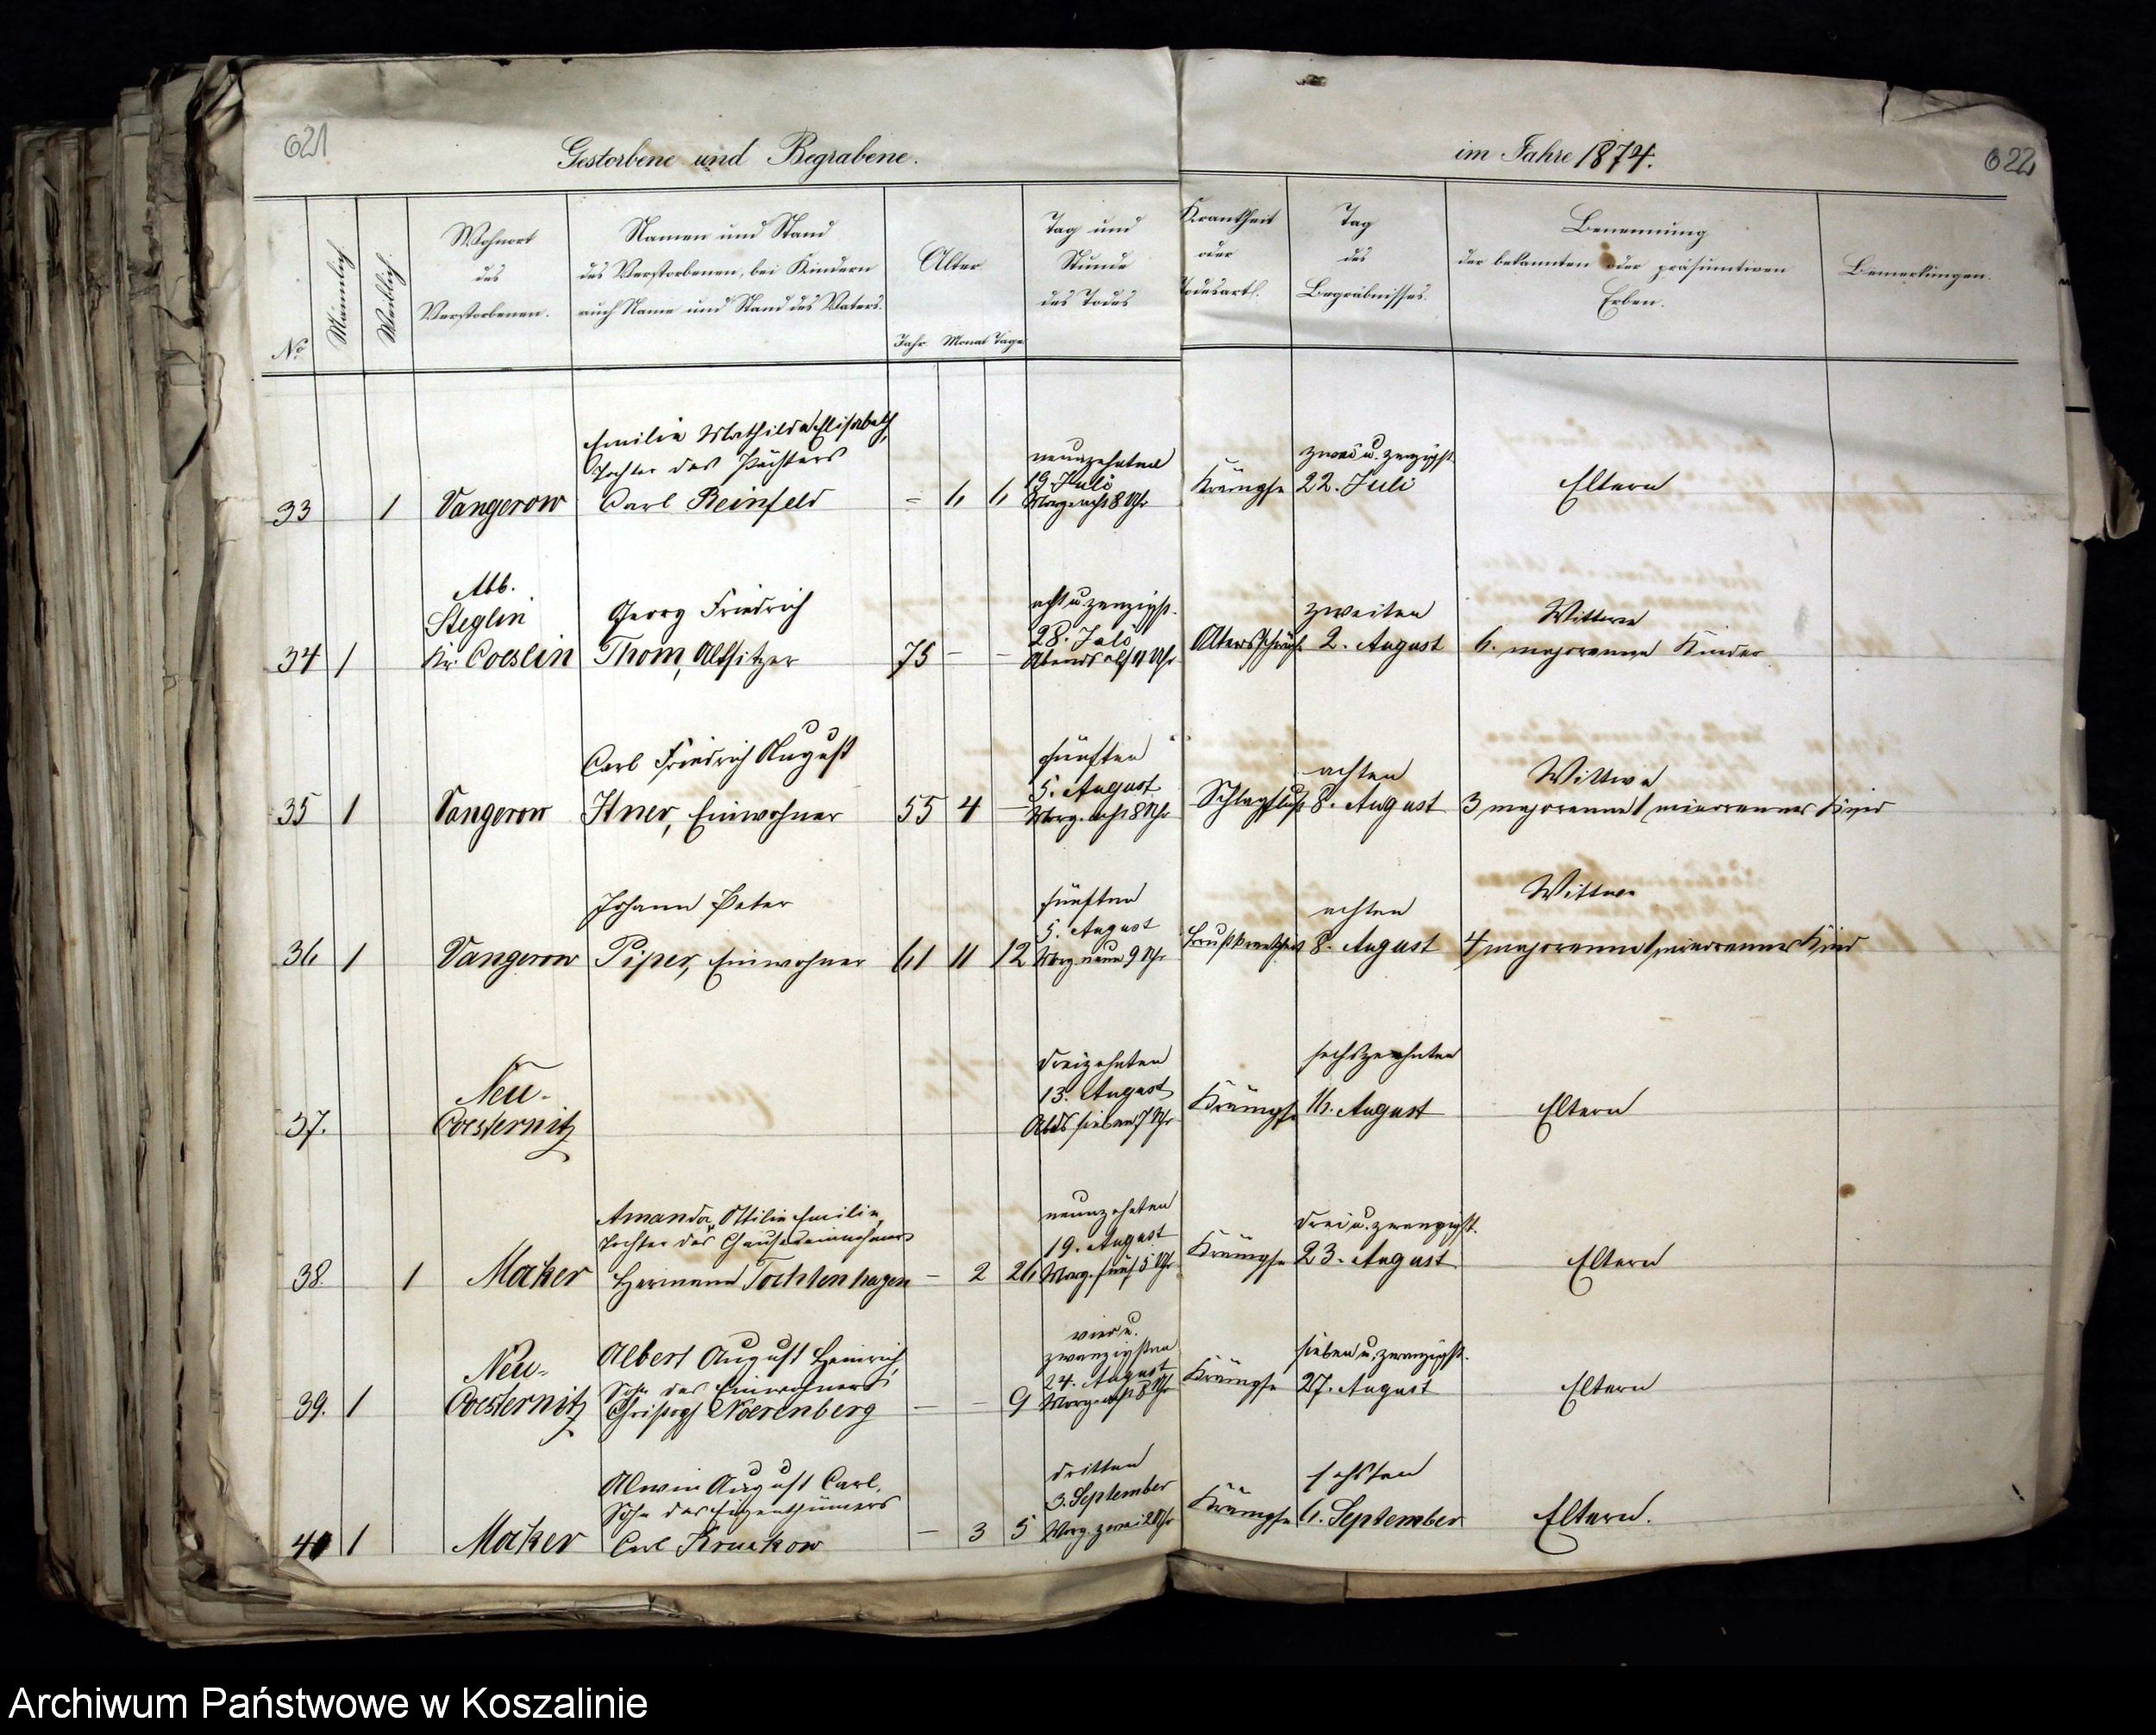 621
Gestorbene und Begrabene.
im Jahre 1874.
622
No
Männlich.
Weiblich.
Wohnort
des
Verstorbenen.
Namen und Stand
des Verstorbenen, bei Kindern
auch Name und Stand des Vaters.
Alter
Jahr Monat Tage
Tag und
Stunde
des Todes
Krankheit
oder
Todesart.
Tag
des
Begräbnisses.
Benennung
der bekannten oder präsumtiven
Erben.
Bemerkungen.
Emilie Mathilde Elisabeth,
Tochter des Pächters
33 1 Vangerow Carl Reinfeld - 6 6
neunzehnten
19 Juli
Morg. acht 8 Uhr
Krämpfe
zwei u. zwzigst.
22. Juli
Eltern
Abb.
Steglin
Kr. Coeslin
34 1
Georg Friedrich
Thom, Altsitzer
75 - -
acht u. zwzigst.
28. Juli
Abends elf 11 Uhr
Altersschwäche
zweiten
2. August
Wittwe
6. majorenne Kinder
35 1 Vangerow
Carl Friedrich August
Itner, Einwohner
55 4 -
fünften
5. August
Morg. acht 8 Uhr
Schlagfluß
achten
8. August
Wittwe
3 majorenne 1 minorennes Kind
36 1 Vangerow
Johann Peter
Piper, Einwohner
61 11 12
fünften
5. August
Morg. neun 9 Uhr
Brustkrankheit
achten
8. August
Wittwe
4 majorenne 1 minorennes Kind
37.
Neu-
Coesternitz
dreizehnten
13. August
Abds sieben 7 Uhr
Krämpfe
sechszehnten
16. August
Eltern
38. 1 Maker
Amanda, Ottilie Emilie,
Tochter des
Hermann Tochtenhagen
- 2 26
neunzehnten
19. August
Morg. fünf 5 Uhr
Krämpfe
drei u. zwanzigst.
23. August
Eltern
39. 1
Neu-
Coesternitz
Albert August Heinrich,
Sohn des Einwohners
Christoph Noerenberg
- - 9
vier u.
zwanzigsten
24. August
Morg. acht 8 Uhr
Krämpfe
sieben u. zwanzigst.
27. August
Eltern
40 1 Maker
Alwin August Carl,
Sohn des Eigenthümers
Carl Kruckow
- 3 5
dritten
3. September
Morg. zwei 2 Uhr
Krämpfe
sechsten
6. September
Eltern.
Archiwum Państwowe w Koszalinie